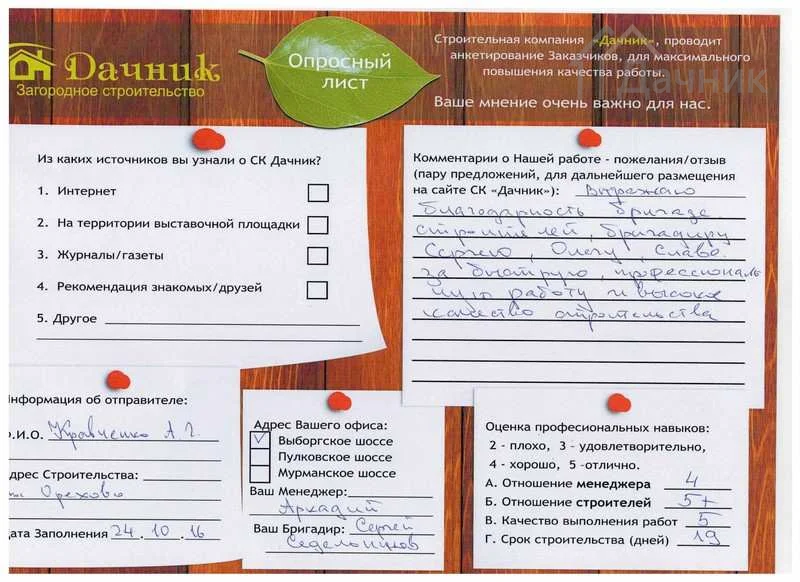 Дачник
Загородное строительство
Опросный
лист
Строительная компания «Дачник», проводит
анкетирование Заказчиков, для максимального
повышения качества работы.
Ваше мнение очень важно для нас.
Дачник
Из каких источников вы узнали о СК Дачник?
1. Интернет
2. На территории выставочной площадки
3. Журналы/газеты
4. Рекомендация знакомых/друзей
5. Другое
Комментарии о Нашей работе - пожелания/отзыв
(пару предложений, для дальнейшего размещения
на сайте СК «Дачник»): Выражаю
благодарность бригаде
строителей, бригадиру
Сергею, Олегу, Славе.
за быструю, профессиональ
ную работу и высокое
качество строительства
нформация об отправителе:
.И.О. Кравченко А Г.
дрес Строительства:
Орехово
ата Заполнения 24.10.16
Адрес Вашего офиса:
Выборгское шоссе
Пулковское шоссе
Мурманское шоссе
Ваш Менеджер:
Аркадий
Ваш Бригадир: Сергей
Седельников
Оценка профессиональных навыков:
2 - плохо, 3 - удовлетворительно,
4 - хорошо, 5 -отлично.
А. Отношение менеджера 4
Б. Отношение строителей 5+
В. Качество выполнения работ 5
Г. Срок строительства (дней) 19